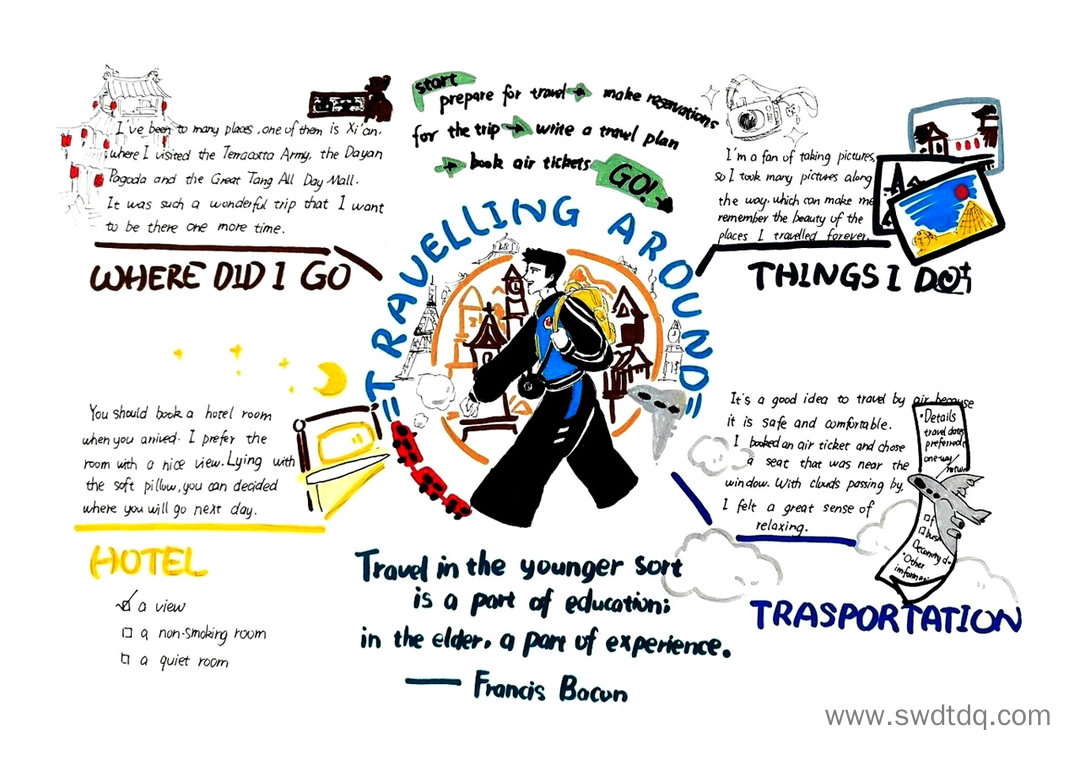 start
prepare for travel → make reservations
for the trip → write a travel plan
→ book air tickets GO!
TRAVELLING AROUND
I've been to many places, one of them is Xi'an,
where I visited the Terracotta Army, the Dayan
Pagoda and the Great Tang All Day Mall.
It was such a wonderful trip that I want
to be there one more time.
WHERE DID I GO
I'm a fan of taking pictures,
so I took many pictures along
the way, which can make me
remember the beauty of the
places I travelled forever.
THINGS I DO
You should book a hotel room
when you arrived. I prefer the
room with a nice view. Lying with
the soft pillow, you can decided
where you will go next day.
HOTEL
a view
a non-smoking room
a quiet room
It's a good idea to travel by air because
it is safe and comfortable.
I booked an air ticket and chose
a seat that was near the
window. With clouds passing by,
I felt a great sense of
relaxing.
•Details
travel dates
preferred
one-way/
return
•Other
TRASPORTATION
Travel in the younger sort
is a part of education;
in the elder, a part of experience.
— Francis Bacun
www.swdtdq.com